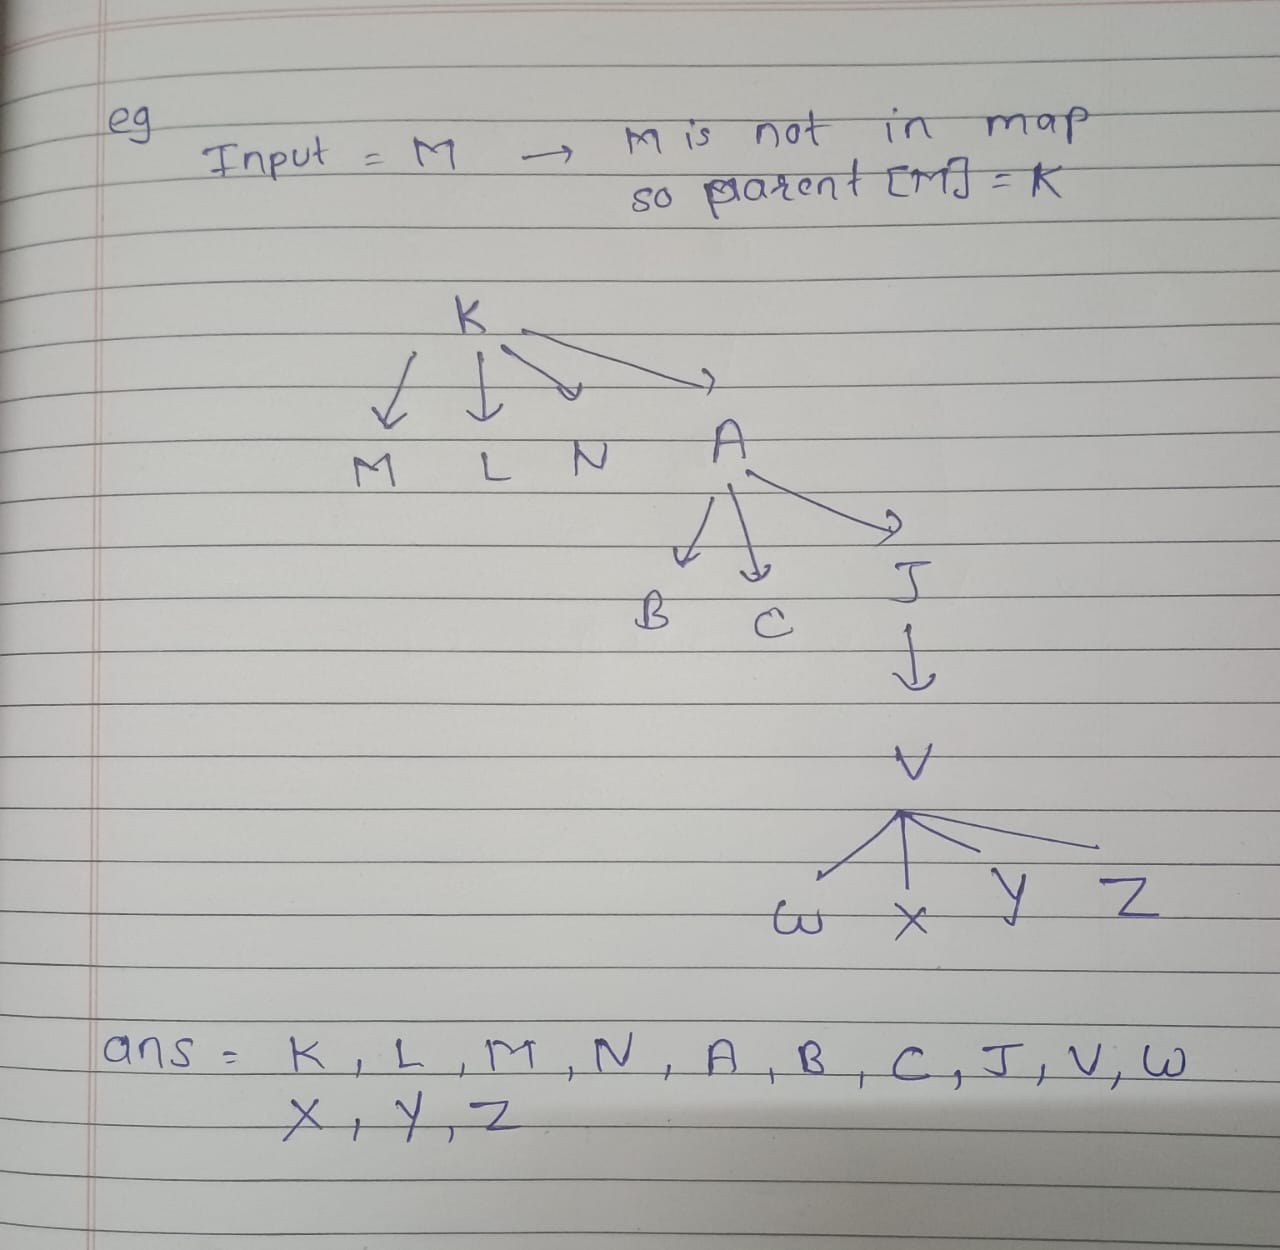 eg
Input = M → M is not in map
so parent [M] = K
K
M L N A
B C J
V
W X Y Z
ans = K, L, M, N, A, B, C, J, V, W
X, Y, Z